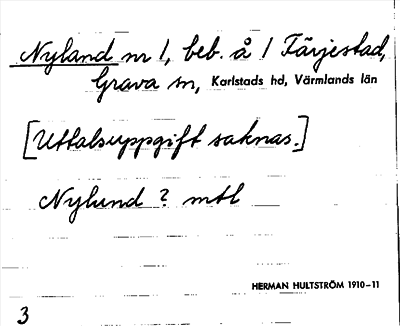 Nyland nr 1, beb. å 1 Färjestad,
Grava sn, Karlstads hd, Värmlands län
[Uttalsuppgift saknas.]
Nylund ? mtl
HERMAN HULTSTRÖM 1910-11
3